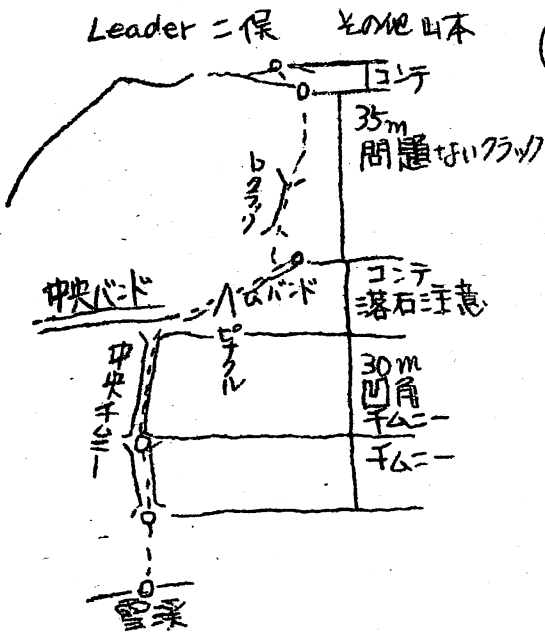 Leader 二俣 その他 山本
コンテ
35m
問題ないクラック
bクラック
コンテ
落石注意
中央バンド
bバンド
ピナクル
中央チムニー
30m
凹角
チムニー
チムニー
雪渓